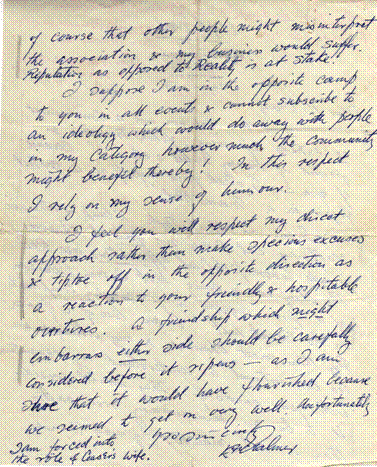 of course that other people might misinterpret
the association & my business would suffer.
Reputation as opposed to Reality is at stake!
I suppose I am in the opposite camp
to you in all events & cannot subscribe to
an ideology which would do away with people
in my category however much the community
might benefit thereby! In this respect
I rely on my sense of humour.
I feel you will respect my direct
approach rather than make specious excuses
& tiptoe off in the opposite direction as
a reaction to your friendly & hospitable
overtures. A friendship which might
embarras either side should be carefully
considered before it ripens — as I am
sure that it would have flourished because
we seemed to get on very well. Unfortunately
I am forced into
the role of Caesar's wife.
Yours sincerely